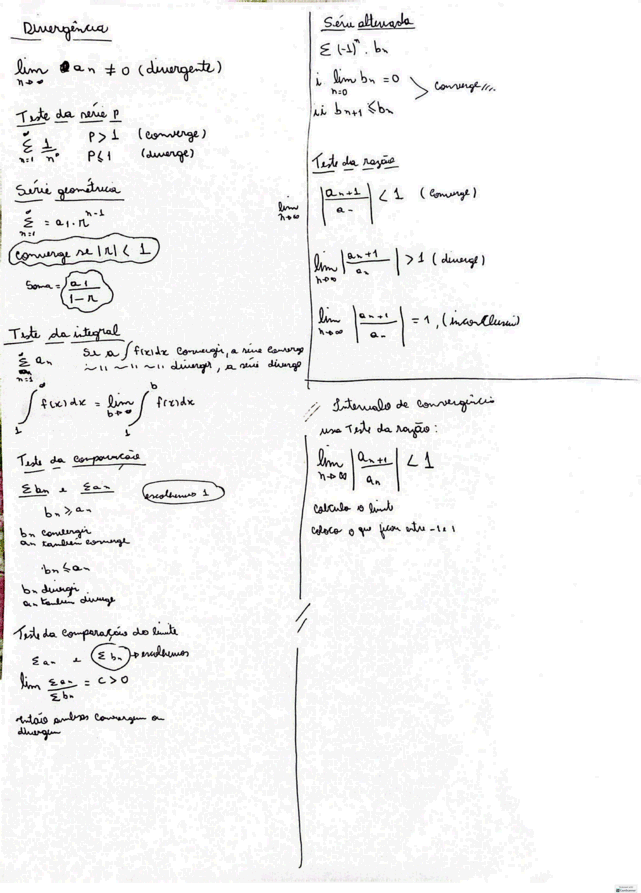 Divergência
lim an ≠ 0 (divergente)
n→∞
Teste da série P
∞
Σ 1/n^p P>1 (converge)
n=1 P≤1 (diverge)
Série geométrica
∞
Σ = a1 . r^n-1
n=1
converge se |r| < 1
Soma = a1/1-r
Teste da integral
Σ an Se a ∫ f(x)dx convergir, a série converge
n=1 ~ 11 ~ 11 ~ 11 divergir, a série diverge
∫1^∞ f(x)dx = lim b→∞ ∫1^b f(x)dx
Teste da comparação
Σbn e Σan escolhemos 1
bn ≥ an
bn convergir
an também converge
bn ≤ an
bn divergi
an também diverge
Teste da comparação do limite
Σan e Σbn → escolhemos
lim Σan/Σbn = C > 0
então ambos convergem ou
divergem
Série alternada
Σ (-1)^n . bn
i lim bn = 0
n=0 converge
ii bn+1 ≤ bn
Teste da razão
lim |an+1/an| < 1 (converge)
n→∞
lim |an+1/an| > 1 (diverge)
n→∞
lim |an+1/an| = 1, (inconclusivo)
n→∞
Intervalo de convergência
usa Teste da razão:
lim |an+1/an| < 1
n→∞
calculo o limite
coloco o que ficou entre -1 e 1